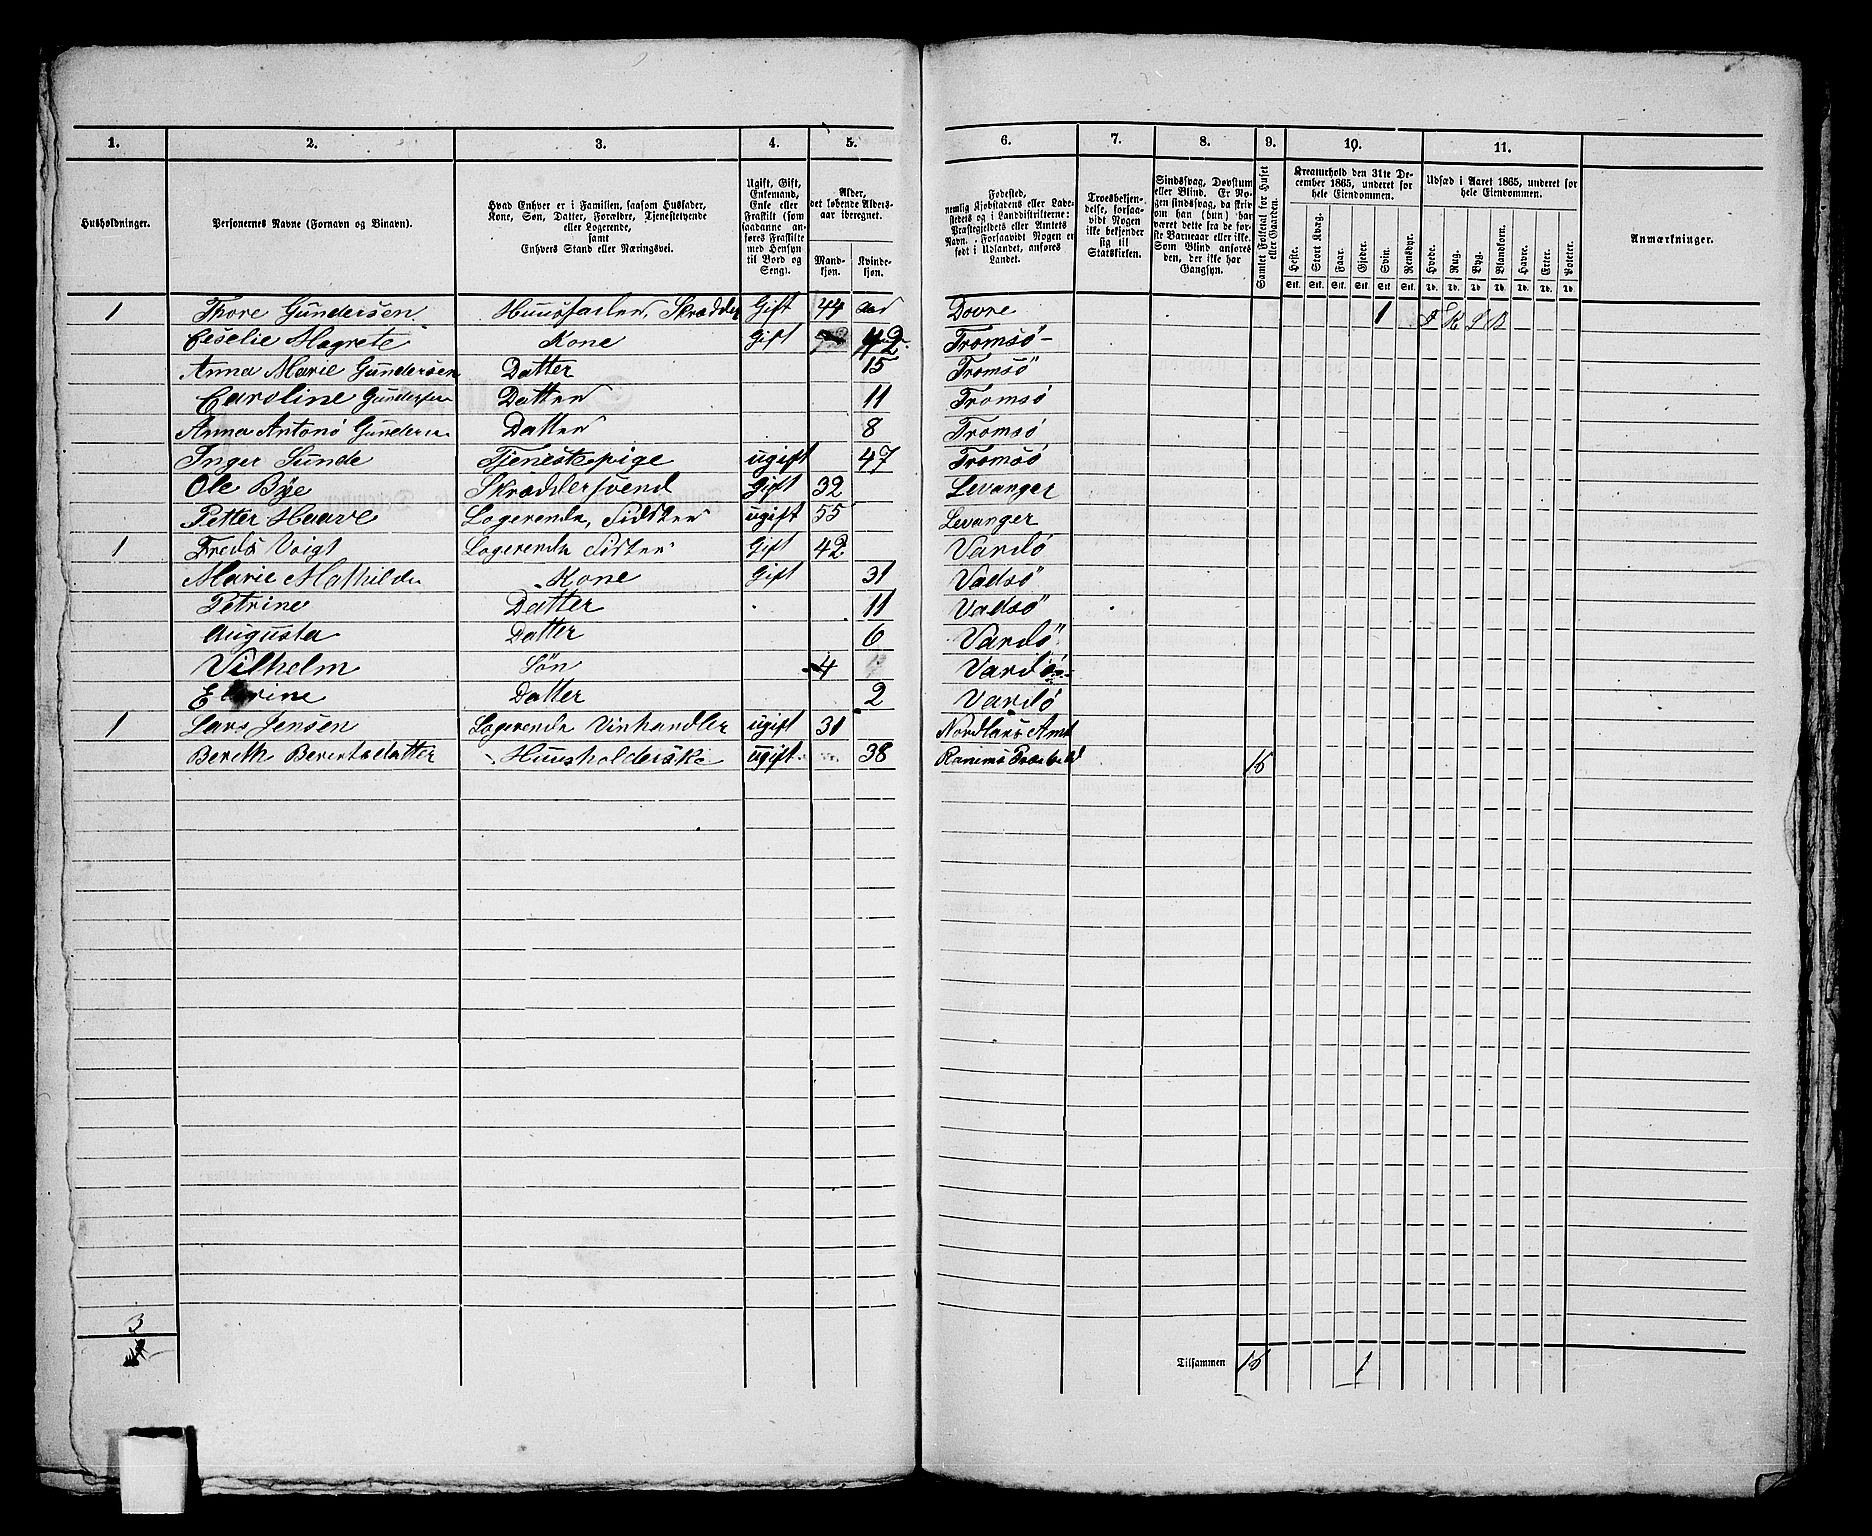 1. 2. 3. 4. 5. 6. 7. 8. 9. 10. 11.
Husholdninger.
Personernes Navne (Fornavn og Binavn).
Hvad Enhver er i Familien, saasom Husfader, Kone, Søn, Datter, Forældre, Tjenestetyende eller Logerende, samt Enhvers Stand eller Næringsvei.
Ugift, Gift, Enkemand, Enke eller Fraskilt (som saadanne anføres Fraskilte med Hensyn til Bord og Seng).
Alder, det løbende Aldersaar iberegnet.
Mandkjøn. Kvindekjøn.
Fødested, nemlig Kjøbstadens eller Ladestedets og i Landdistrikterne: Præstegjeldets eller Amtets Navn. Forsaavidt Nogen er født i Udlandet, anføres Landet.
Troesbekjendelse, forsaavidt Nogen ikke bekjender sig til Statskirken.
Sindssvag, Døvstum eller Blind. Er Nogen sindssvag, da skrives om han (hun) har været dette fra de første Barneaar eller ikke. Som Blind anføres den, der ikke har Gangsyn.
Samlet Folketal for Huset eller Gaarden.
Kreaturhold den 31te December 1865, underet for hele Eiendommen.
Heste. Stort Kvæg. Faar. Gjeder. Svin. Rensdyr.
Stk. Stk. Stk. Stk. Stk. Stk.
Udsæd i Aaret 1865, underet for hele Eiendommen.
Hvede. Rug. Byg. Blandkorn. Havre. Erter. Poteter.
Td. Td. Td. Td. Td. Td. Td.
Anmærkninger.
1 Thore Gundersen Huusfader, Skrædder Gift 44 Dovre 1
Ceselie Magrete Kone Gift 42 Tromsø
Anna Marie Gundersen Datter 15 Tromsø
Caroline Gundersen Datter 11 Tromsø
Anna Antonø Gundersen Datter 8 Tromsø
Inger Sunde Tjenestepige ugift 47 Tromsø
Ole Bye Skræddersvend Gift 32 Levanger
Petter Haave Logerende, ugift 55 Levanger
1 Freds Voigt Logerende Gift 42 Vardø
Marie Mathilde Kone Gift 31 Vadsø
Petrine Datter 11 Vadsø
Augusta Datter 6 Vardø
Vilhelm Søn 4 Vardø
Datter 2 Vardø
1 Lars Jensen Logerende Vinhandler ugift 31 Nordlans Amt
Bereth Berentsdatter Huusholderske ugift 38 16
3
Tilsammen 16 1